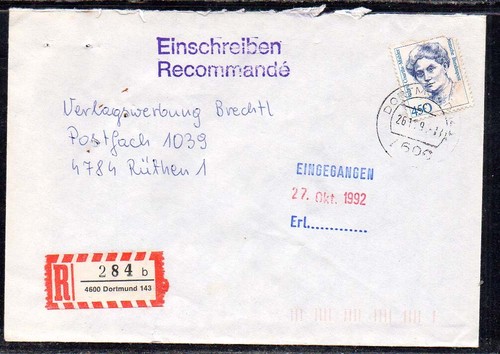 Einschreiben
Recommandé
450
DORTM
Verlagswerbung Brechtl
Postfach 1039
4784 Rüthen 1
EINGEGANGEN
27. Okt. 1992
Erl............
R
284 b
4600 Dortmund 143